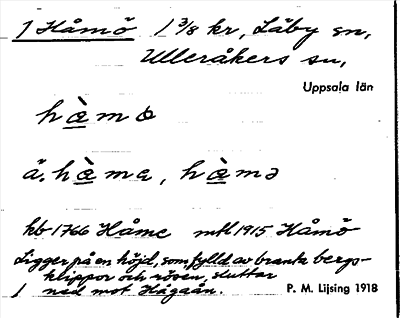 1 Håmö 1 3/8 kr, Läby sn,
Ulleråkers sn,
Uppsala län
hàmö
ä. hàma, hàmə
kb 1766 Håme mtl 1915 Håmö
Ligger på en höjd, som, fylld av branta bergs-
klippor och rösen, sluttar
1 ned mot Hågaån.
P. M. Lijsing 1918